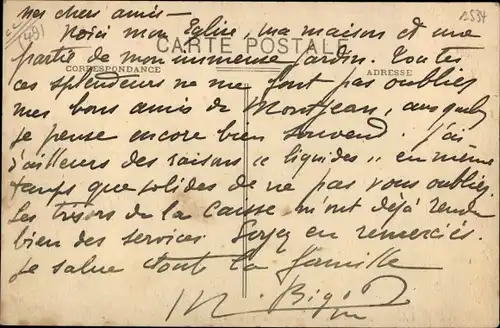 mes chers amis -
Voici mon Eglise, ma maison et une
CARTE POSTALE
partie de mon immense jardin. Toutes
CORRESPONDANCE
ADRESSE
ces splendeurs ne me font pas oublier
mes bons amis de Montjean, auxquels
je pense encore bien souvent. J'ai
d'ailleurs des raisons « liquides » en même
temps que solides de ne pas vous oublier.
Les trésors de la caisse m'ont déjà rendu
bien des services. Soyez en remerciés.
Je salue toute la famille
M. Bigot
(49)